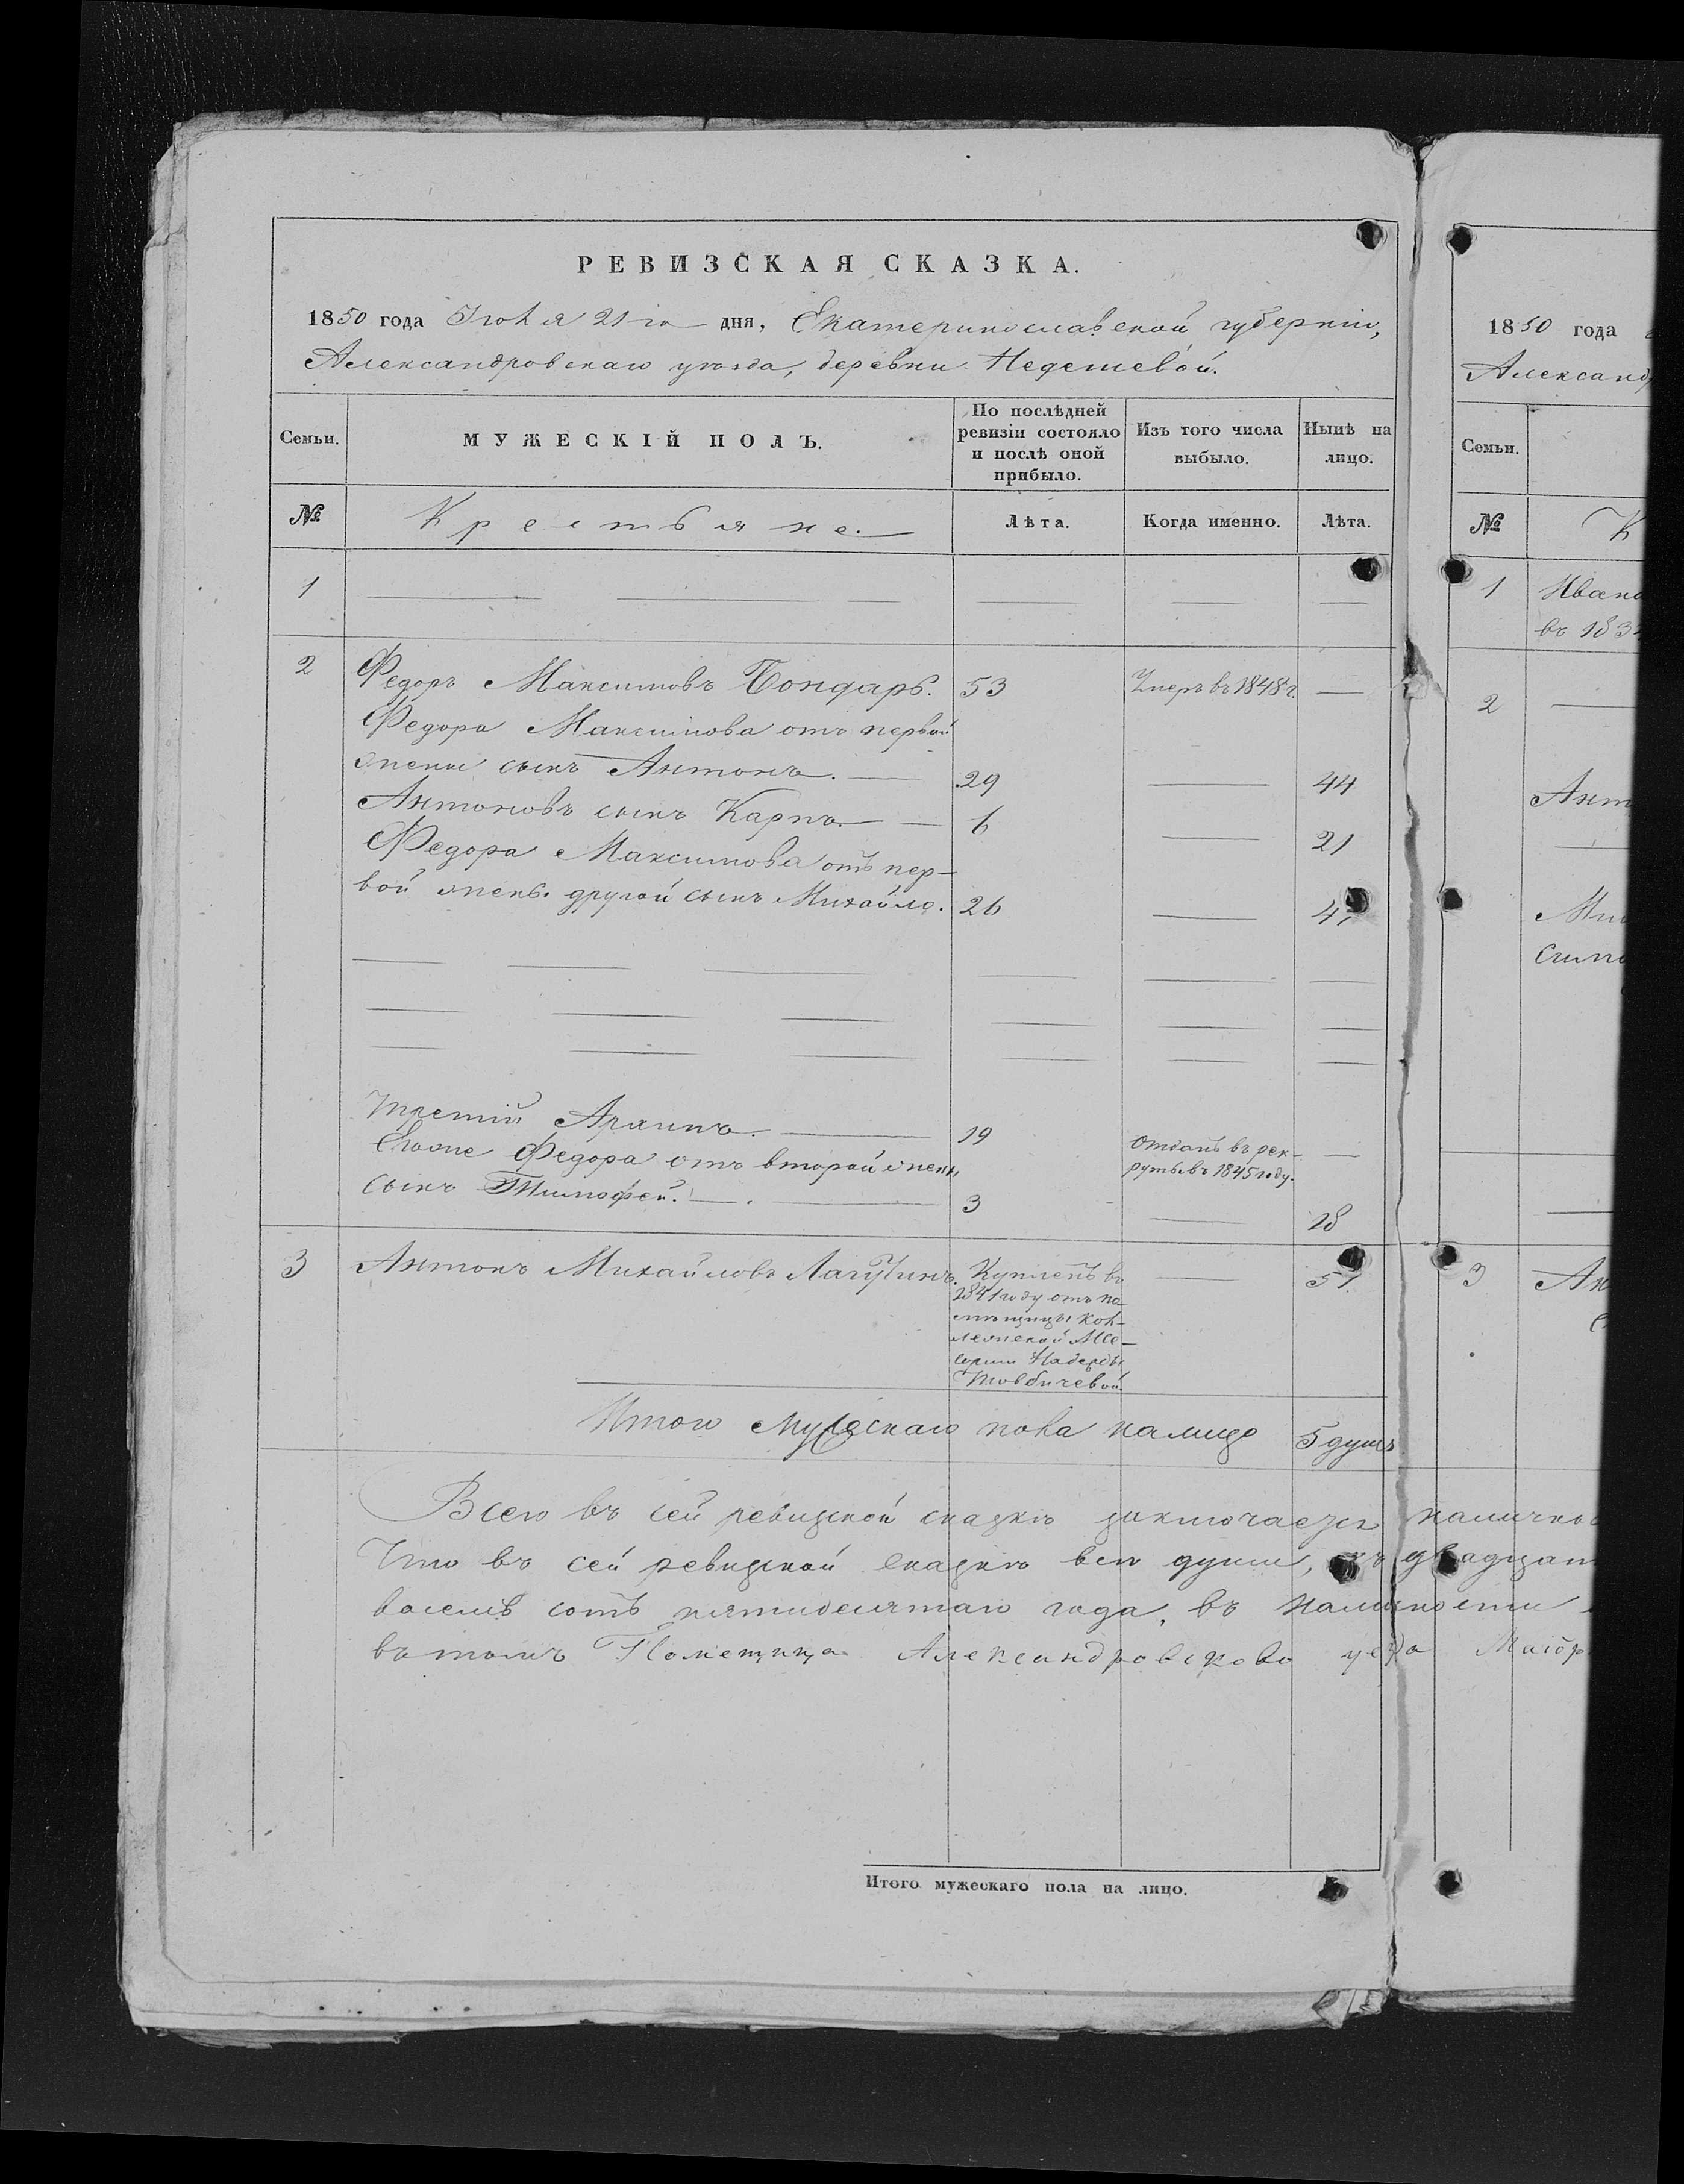 РЕВИЗСКАЯ СКАЗКА.
1850 года Іюня 21го дня, Екатеринославской губерніи,
Александровскаго уѣзда, деревни Недешевой.
Семьи.
МУЖЕСКІЙ ПОЛЪ.
По послѣдней
ревизіи состояло
и послѣ оной
прибыло.
Изъ того числа
выбыло.
Нынѣ на
лицо.
№ Крестьяне. Лѣта. Когда именно. Лѣта.
1
2 Федоръ Максимовъ Бондарь. 53 Умеръ въ 1848 г.
Федора Максимова отъ первой
жены сынъ Антонъ. 29 44
Антоновъ сынъ Карпъ. 6 21
Федора Максимова отъ пер-
вой жены другой сынъ Михайло. 26
третій Архипъ. 19 Отданъ въ рек-
руты въ 1845 году.
Егоже Федора отъ второй жены
сынъ Тимофей. 3 18
3 Антонъ Михайловъ Лагутинъ. 51
Купленъ въ
1841 году отъ по-
мѣщицы Кол-
лежской Ассе-
сорши Надежды
Итого мужескаго пола налицо 5 душъ
Всего въ сей ревизской сказкѣ заключается
Что въ сей ревизской сказкѣ всѣ души,
восемь сотъ пятидесятаго года, въ наличности
въ томъ Помещица Александровскова уезда
Итого мужескаго пола на лицо.
1850 года
Александ
Семьи.
№ К
1 Ивана
въ 183
2
Ант
Мих
Симо
3 Ан